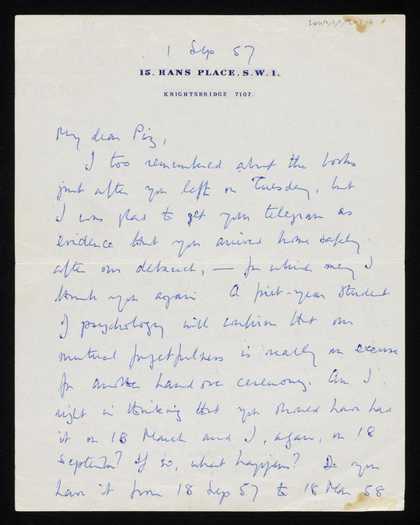 1 Sep 57
15. HANS PLACE. S.W.1.
KNIGHTSBRIDGE 7107.
My dear Piz,
I too remembered about the books
just after you left on Tuesday, but
I was glad to get your telegram as
evidence that you arrived home safely
after our debauch, — for which may I
thank you again. A first-year student
of psychology will confirm that our
mutual forgetfulness is really an excuse
for another hand over ceremony. Am I
right in thinking that you should have had
it on 18 March and I, again, on 18
September? If so, what happens? Do you
have it from 18 Sep 57 to 18 Mar 58